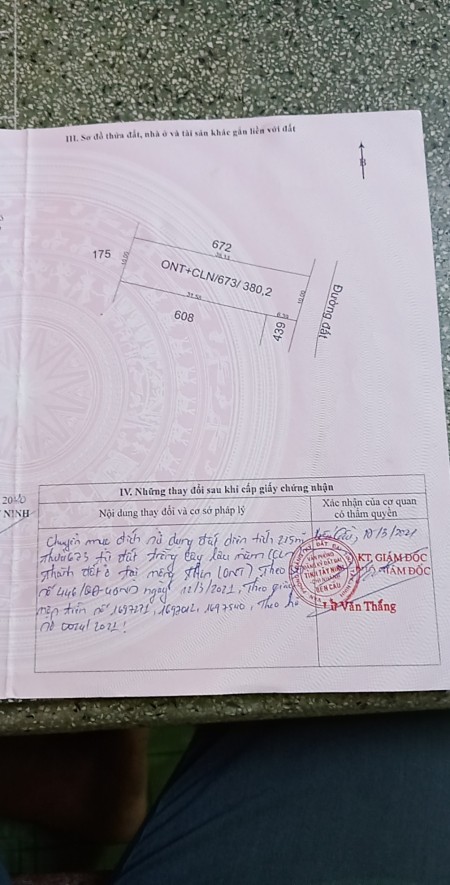 III. Sơ đồ thửa đất, nhà ở và tài sản khác gắn liền với đất
B
672
175
10.00
ONT+CLN/673/ 380,2
10.00
608
439
Đường đất
NINH
IV. Những thay đổi sau khi cấp giấy chứng nhận
Nội dung thay đổi và cơ sở pháp lý
Xác nhận của cơ quan có thẩm quyền
Chuyển mục đích sử dụng đất diện tích 215m²
thửa 673 từ đất trồng cây lâu năm (CLN)
thành đất ở tại nông thôn (ONT) Theo
ngày 12/3/2021, Theo giấy
nộp tiền số 1697271, 1697012, 1697540, Theo hồ
/2021!
KT. GIÁM ĐỐC
GIÁM ĐỐC
TỈNH TÂY NINH
BẾN CẦU
Lữ Văn Thắng